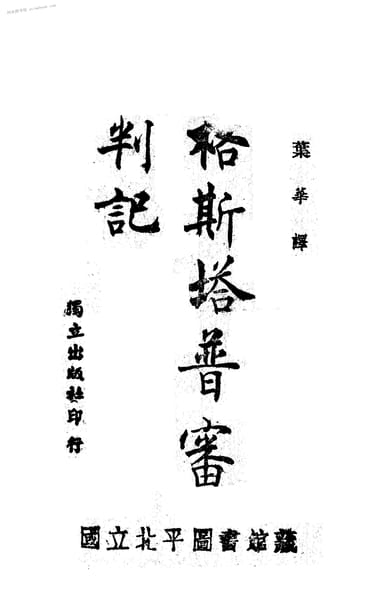 葉華譯
格斯塔普審
判記
獨立出版社印行
國立北平圖書館藏